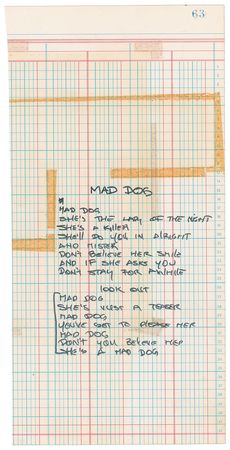 63
MAD DOG
MAD DOG
SHE'S THE LADY OF THE NIGHT
SHE'S A KILLER
SHE'LL DO YOU IN ALRIGHT
AND MISTER
DON'T BELIEVE HER SMILE
AND IF SHE ASKS YOU
DON'T STAY FOR AWHILE
LOOK OUT
MAD DOG
SHE'S JUST A TEASER
MAD DOG
YOU'VE GOT TO PLEASE HER
MAD DOG
DON'T YOU BELIEVE HER
SHE'S A MAD DOG